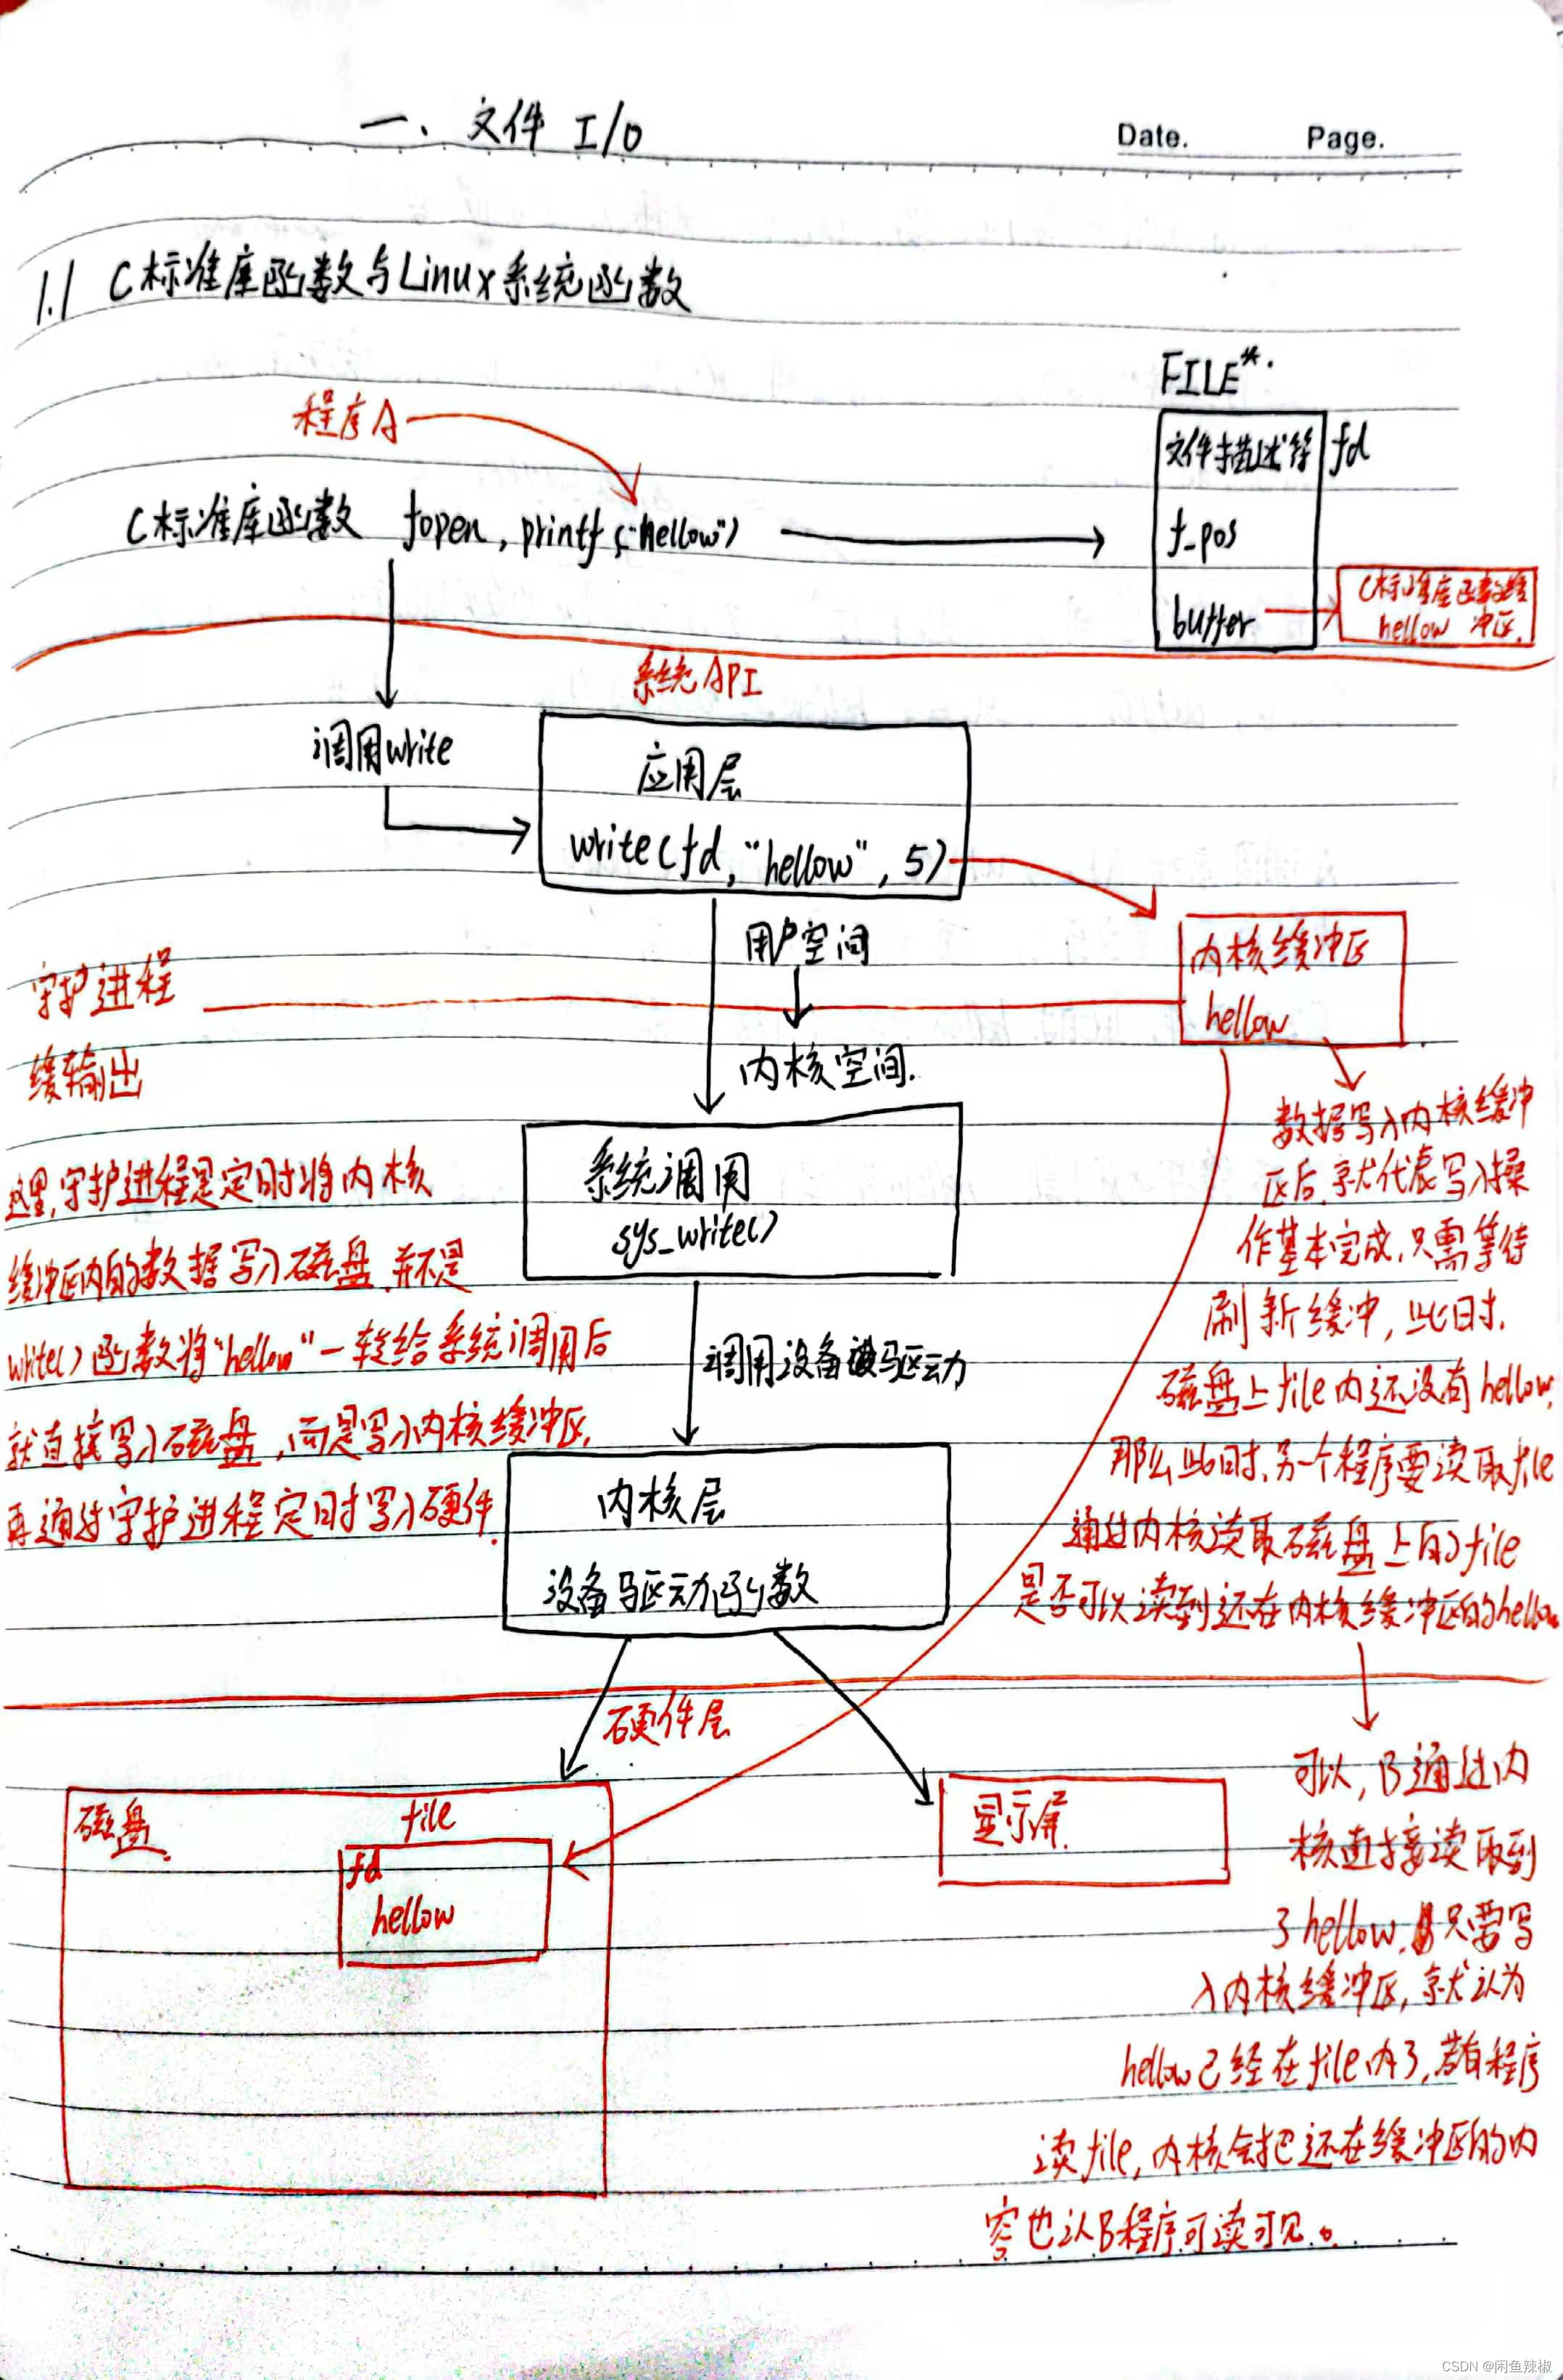 一、文件 I/O
Date. Page.
1.1 C标准库函数与Linux系统函数
FILE*.
程序A
文件描述符 fd
C标准库函数 fopen, printf("hellow")
f_pos
buffer
C标准库函数缓
hellow 冲区.
系统API
调用write
应用层
write(fd,"hellow",5)
用户空间
内核空间.
内核缓冲区
hellow
守护进程
缓输出
这里,守护进程是定时将内核
缓冲区内的数据写入磁盘,并不是
write()函数将"hellow"一转给系统调用后
就直接写入磁盘,而是写入内核缓冲区,
再通过守护进程定时写入硬件.
系统调用
sys_write()
调用设备驱动
内核层
设备驱动函数
数据写入内核缓冲
区后,就代表写入操
作基本完成,只需等待
刷新缓冲,此时.
磁盘上file内还没有hellow,
那么此时,另一个程序要读取file
通过内核读取磁盘上的file
是否可以读到还在内核缓冲区的hellow
硬件层
磁盘.
file
fd
hellow
显示屏.
可以,B通过内
核直接读取到
了hellow,只要写
入内核缓冲区,就认为
hellow已经在file内了,若有程序
读file,内核会把还在缓冲区的内
容也认B程序可读可见。
CSDN @闲鱼辣椒